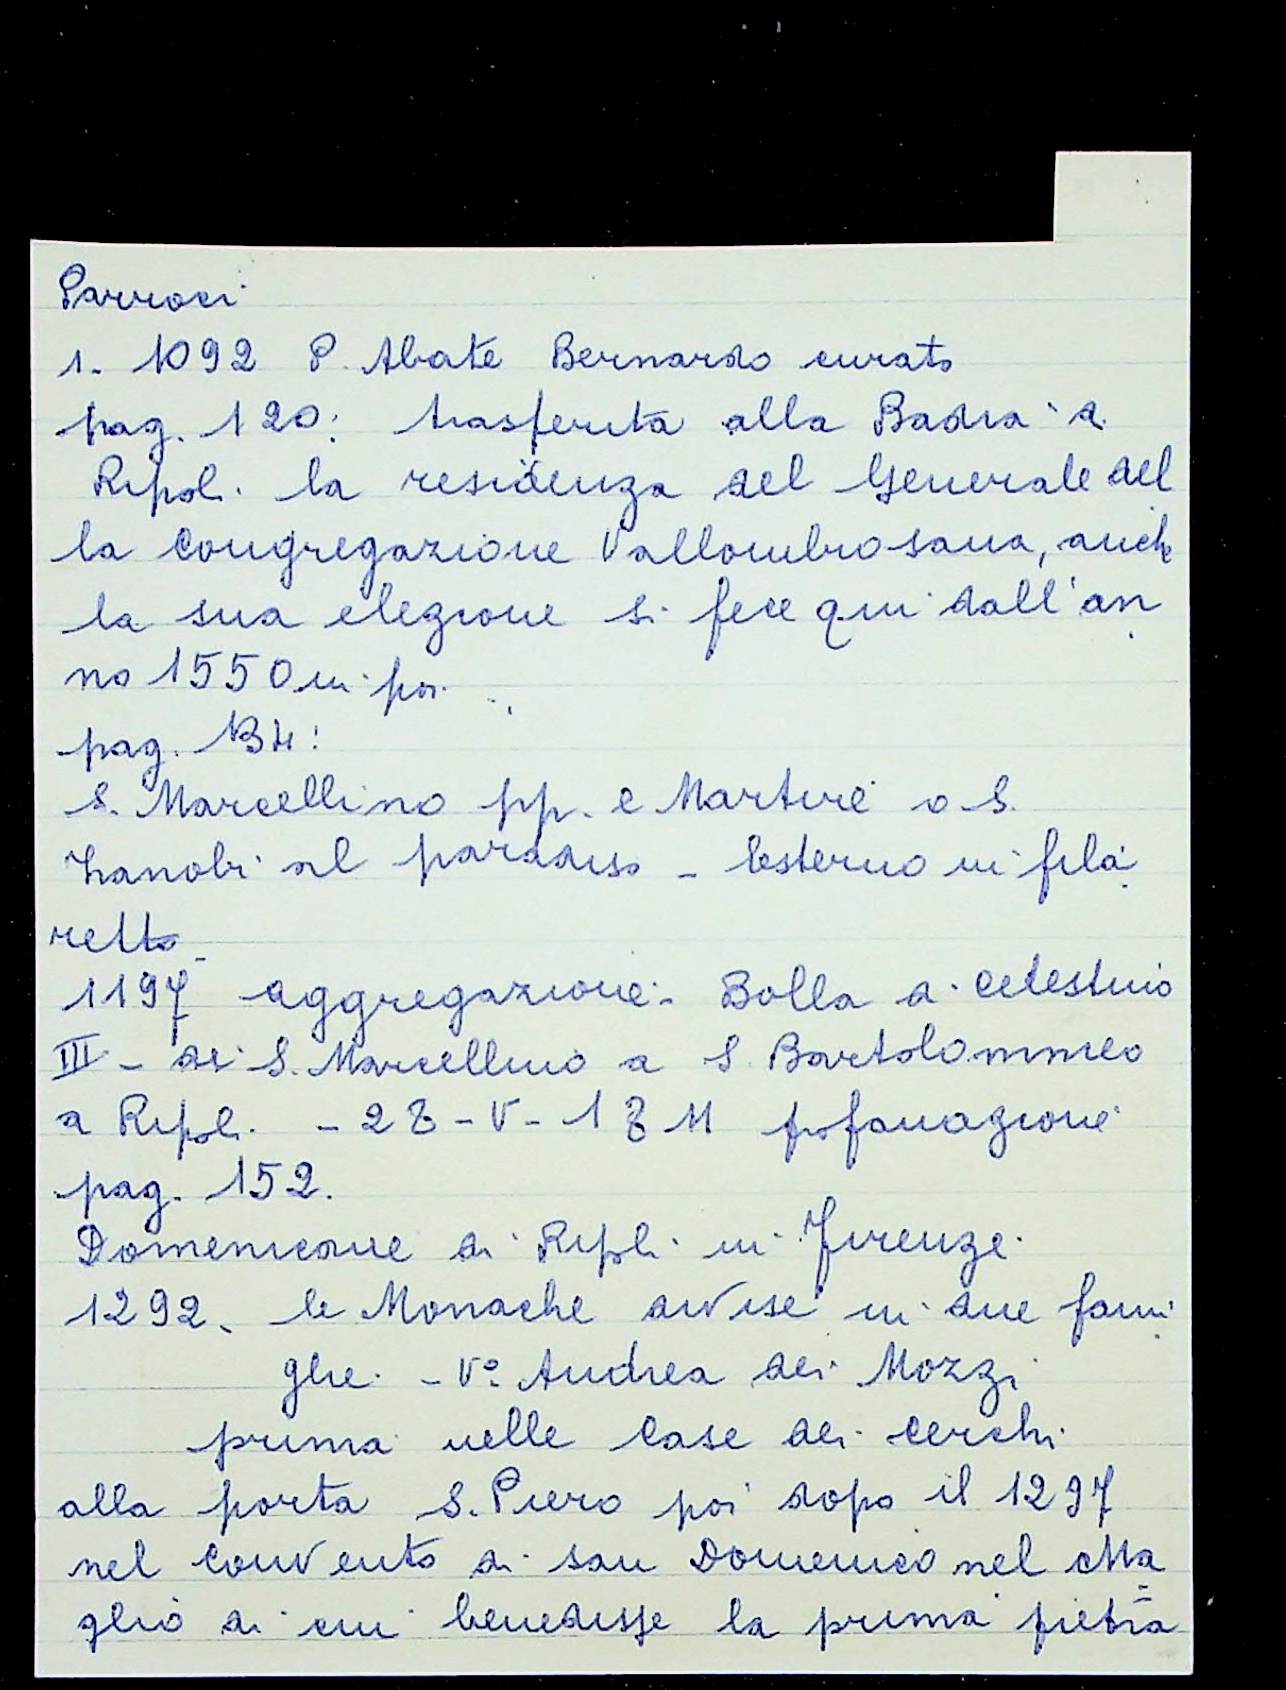 Parroci
1. 1092 P. Abate Bernardo curato
pag. 120: trasferita alla Badia di
Ripoli la residenza del Generale del
la Congregazione Vallombrosana, anche
la sua elezione si fece qui dall'an
no 1550 in poi
pag. 134:
S. Marcellino pp. e Martire o S.
Zanobi al paradiso - esterno in fila
retto -
1197 aggregazione - Bolla di Celestino
III - di S. Marcellino a S. Bartolommeo
a Ripoli - 28-V-1811 profanazione
pag. 152.
Domenicane di Ripoli in Firenze
1292. le Monache divise in due fami
glie - Vº Andrea dei Mozzi
prima nelle Case dei Cerchi
alla porta S. Piero poi dopo il 1297
nel Convento di san Domenico nel Ma
glio di cui benedisse la prima pietra